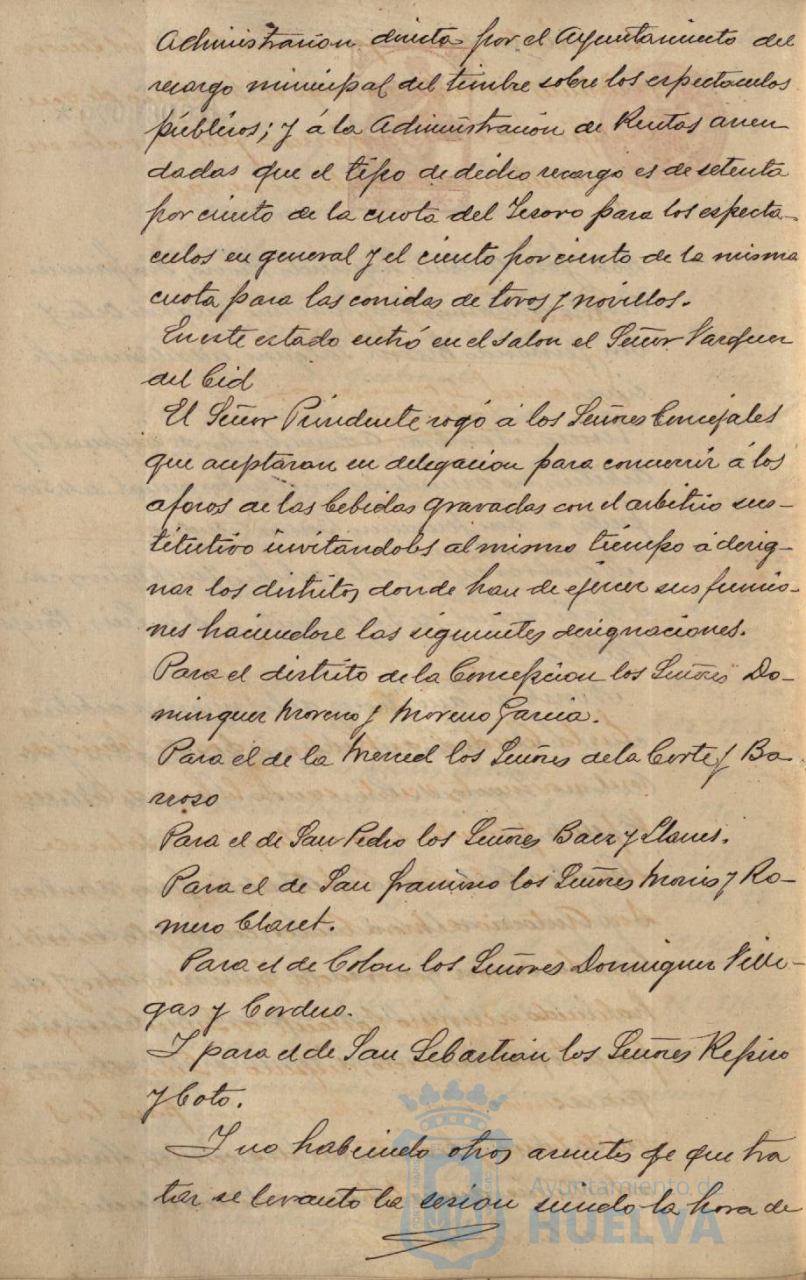 Administracion directa por el Ayuntamiento del
recargo municipal del timbre sobre los espectaculos
públicos; y á la Administracion de Rentas arren
dadas que el tipo de dicho recargo es de setenta
por ciento de la cuota del Tesoro para los especta-
culos en general y el ciento por ciento de la misma
cuota para las corridas de toros y novillos.
En este estado entró en el salon el Señor Vazquez
del Cid
El Señor Presidente rogó á los Señores Concejales
que aceptaran su delegacion para concurrir á los
aforos de las bebidas gravadas con el arbitrio sus-
titutivo invitandoles al mismo tiempo á desig-
nar los distritos donde han de ejercer sus funcio-
nes haciendose las siguientes designaciones.
Para el distrito de la Concepcion los Señores Do-
minguez Moreno y Moreno Garcia.
Para el de la Merced los Señores de la Corte y Ba-
rroso
Para el de San Pedro los Señores Baez y Llanes.
Para el de San Francisco los Señores Moris y Ro-
mero Claret.
Para el de Colon los Señores Dominguez Ville-
gas y Cordero.
Y para el de San Sebastian los Señores Repiso
y Coto.
Y no habiendo otros asuntos de que tra
tar se levantó la sesion siendo la hora de
Ayuntamiento de
HUELVA